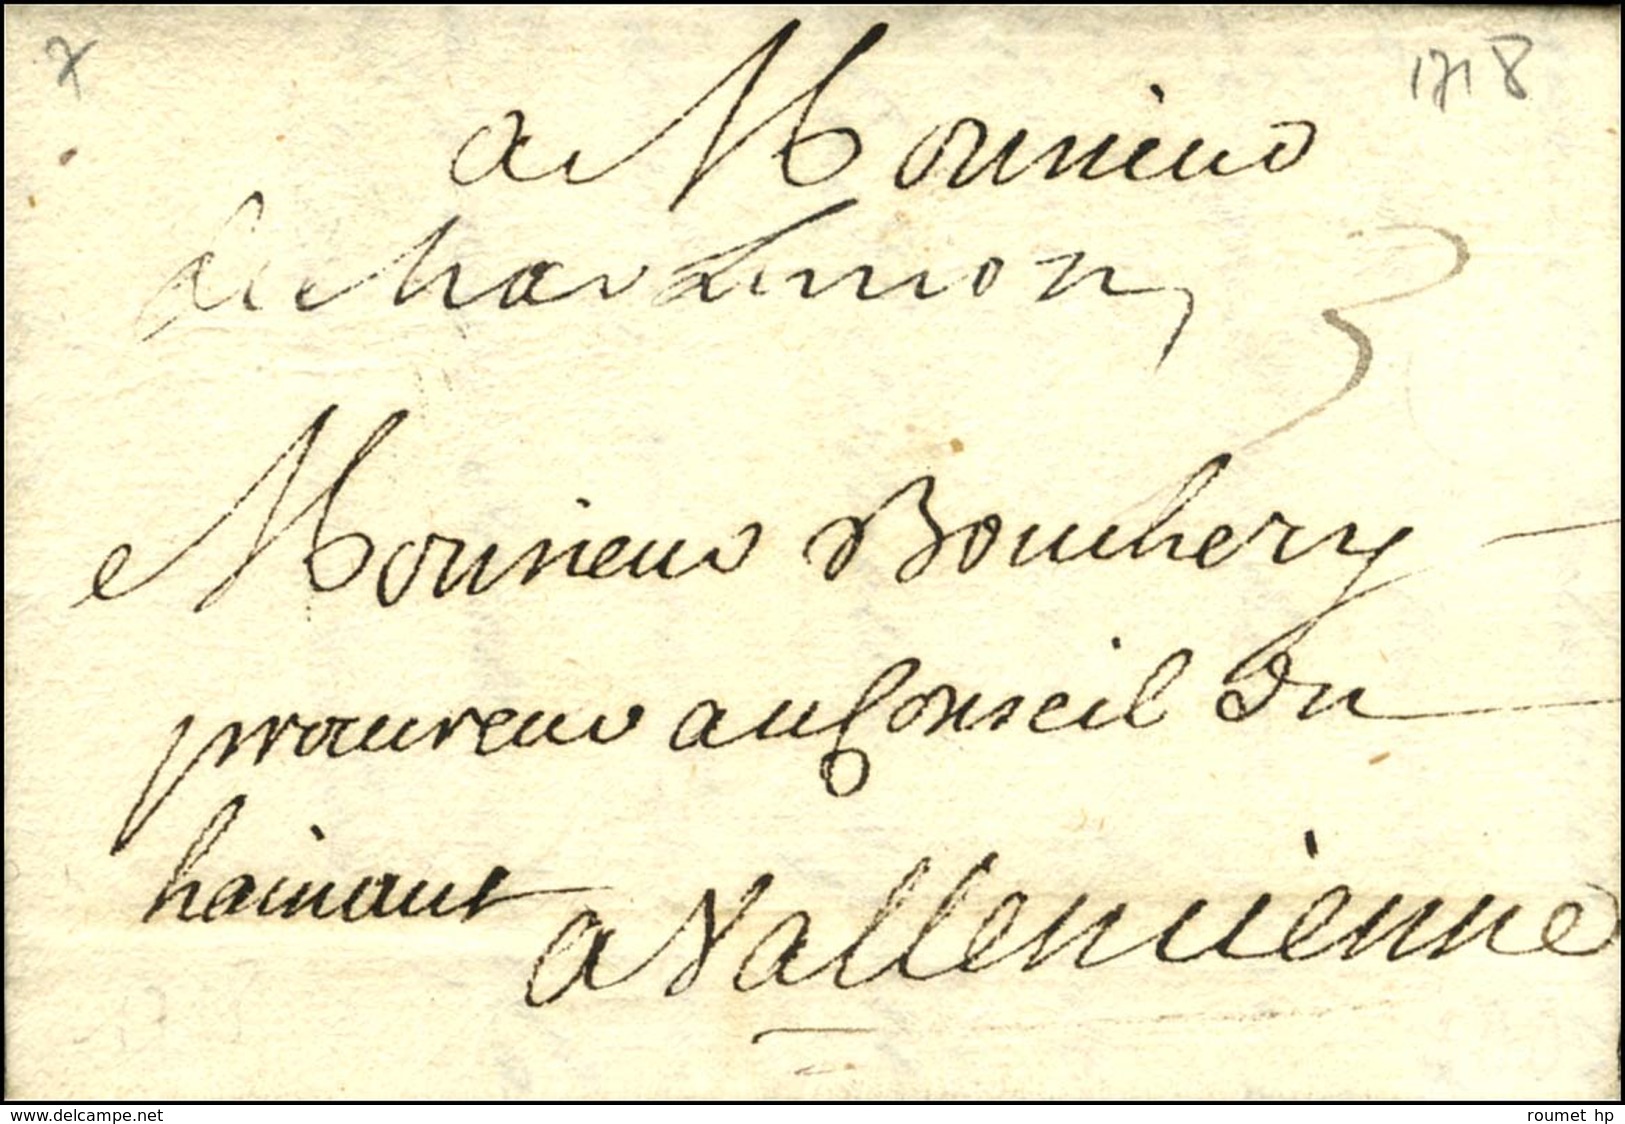 7 1718
a Monsieur
de charlemon
3
Monsieur Bouchery
procureur au Conseil du
hainaut
a Vallencienne
www.delcampe.net roumet_hp